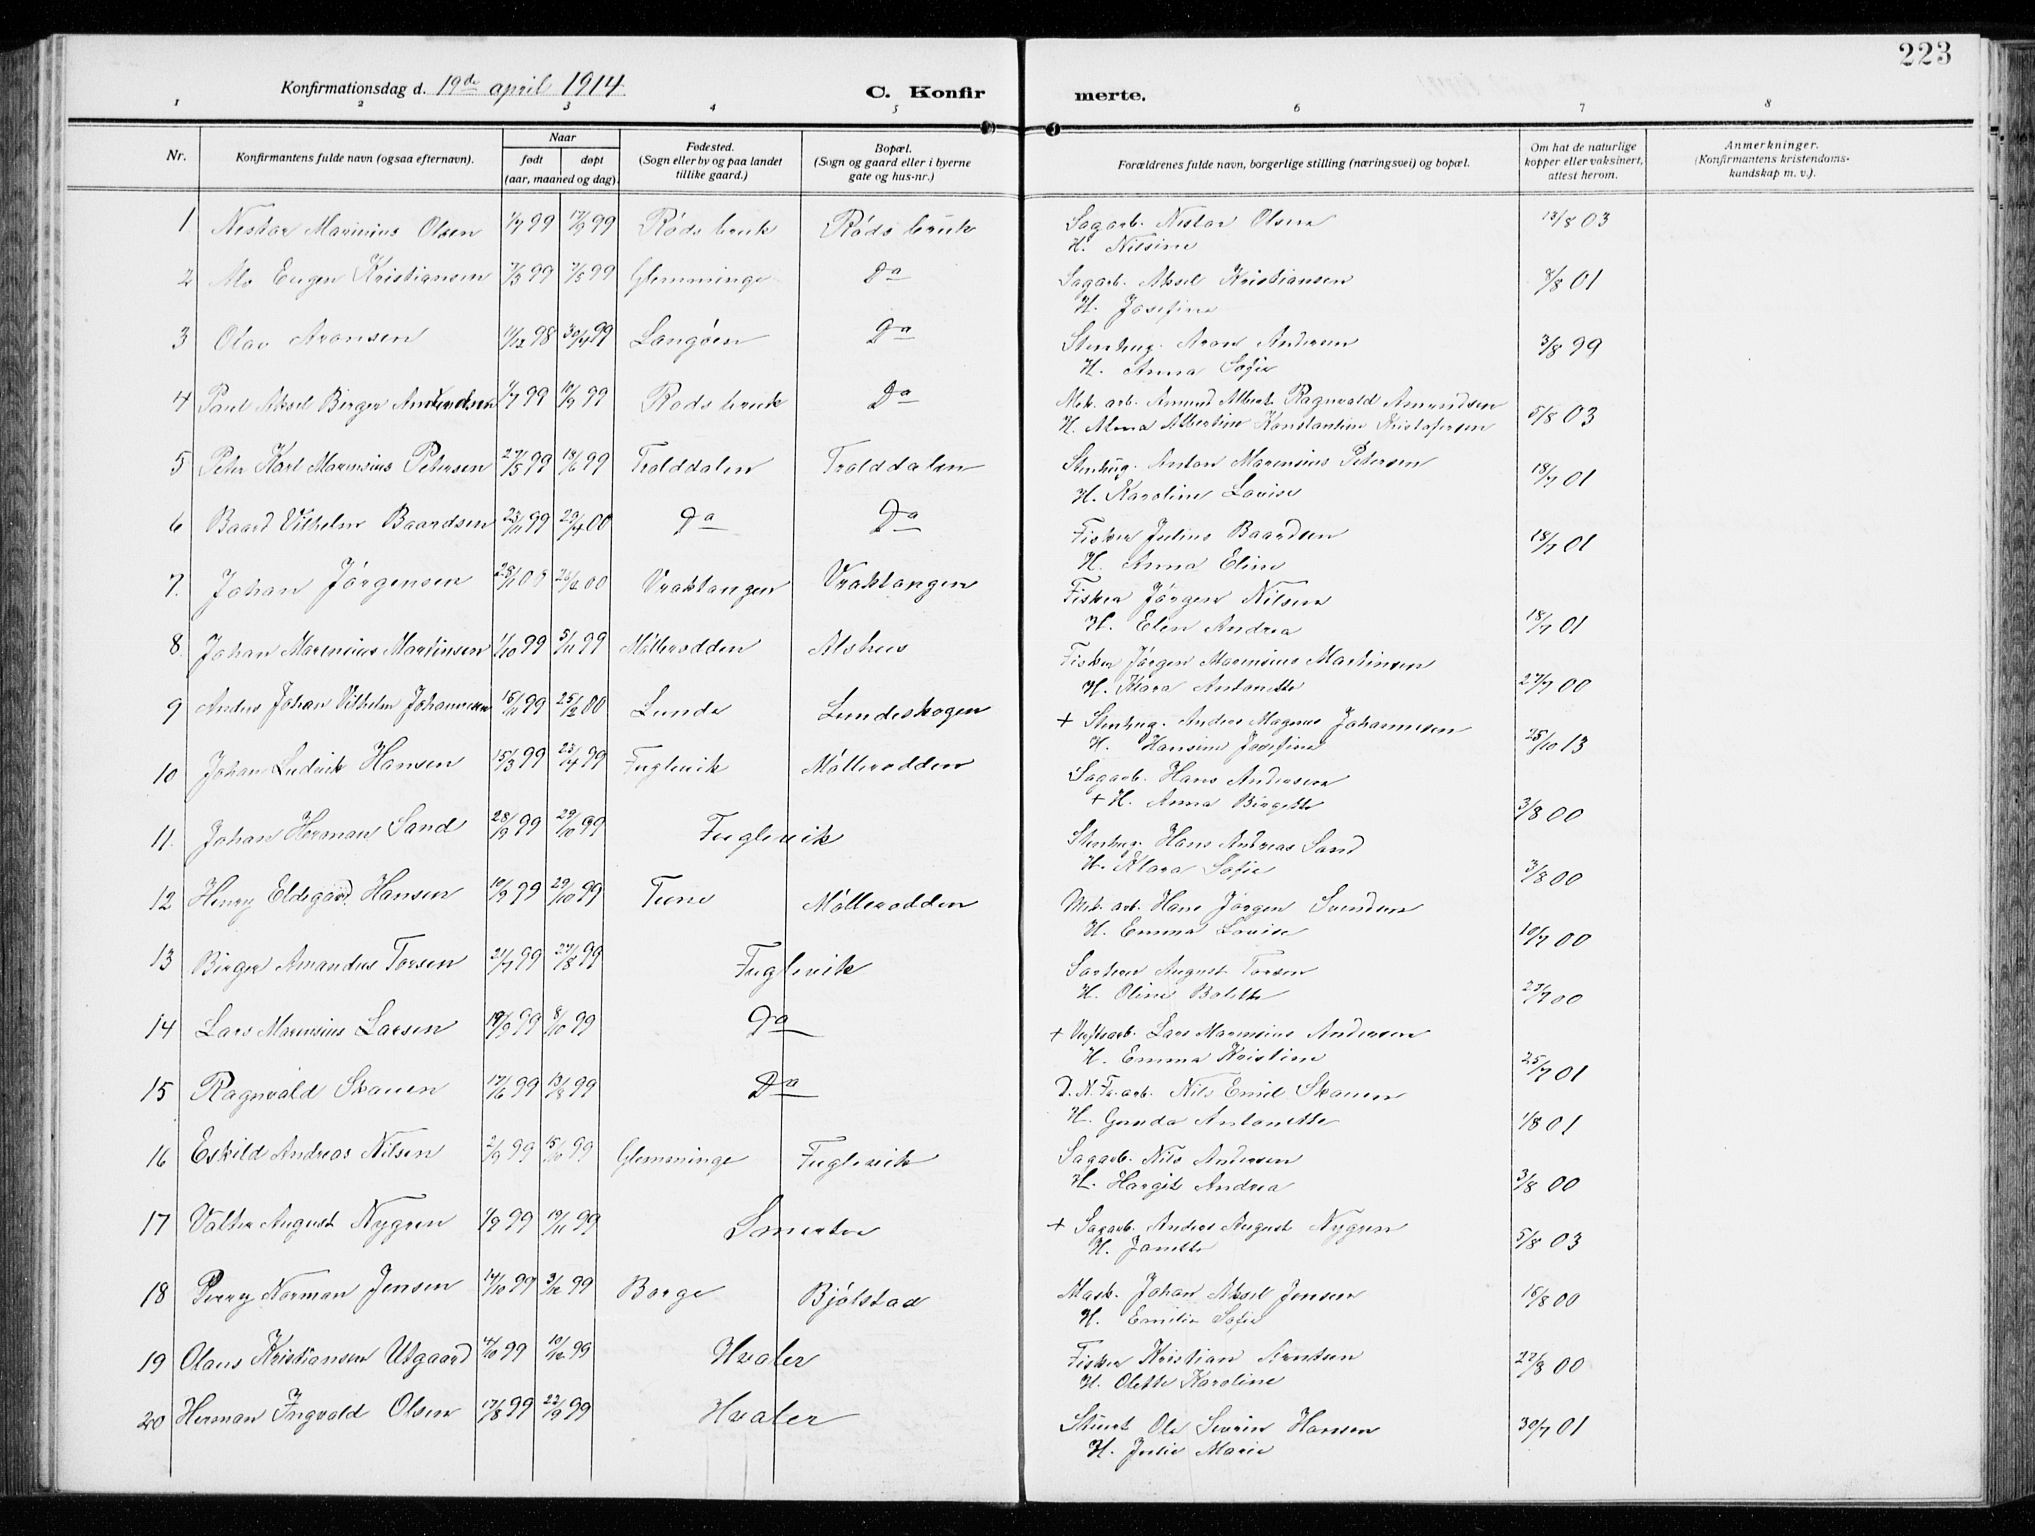 223
Konfirmationsdag d. 19de april 1914
C. Konfirmerte.
1 2 3 4 5 6 7 8
Nr.
Konfirmantens fulde navn (ogsaa efternavn).
Naar
født døpt
(aar, maaned og dag).
Fødested.
(Sogn eller by og paa landet
tillike gaard.)
Bopæl.
(Sogn og gaard eller i byerne
gate og hus-nr.)
Forældrenes fulde navn, borgerlige stilling (næringsvei) og bopæl.
Om hat de naturlige
kopper eller vaksinert,
attest herom.
Anmerkninger.
(Konfirmantens kristendoms-
kundskap m. v.).
1 Nestor Marinius Olsen 1/7 99 17/9 99 Røds bruk Røds bruk Sagarb. Nestor Olsen 13/8 03
H. Nilsine
2 Eugen Kristiansen 7/3 99 7/5 99 Glemminge Do Sagarb. Aksel Kristiansen 8/8 01
H. Josefine
3 Olav Aronsen 11/12 98 30/4 99 Langøen Do Stenhug. Aron Andersen 3/8 99
H. Anna Sofie
4 Paul Aksel Birger Amundsen 1/7 99 10/9 99 Røds bruk Do Mek. arb. Amund Albert Ragnvald Amundsen 5/8 03
H. Alma Albertine Konstantine Kristofersen
5 Peter Karl Marensius Petersen 27/5 99 18/6 99 Trolddalen Trolddalen Stenhug. Anton Marensius Petersen 18/7 01
H. Karoline Lovise
6 Baard Vilhelm Baardsen 23/11 99 29/4 00 Do Do Fisker Julius Baardsen 18/7 01
H. Anna Eline
7. Johan Jørgensen 25/1 00 00 Vraktangen Vraktangen Fisker Jørgen Nilsen 18/7 01
H. Elen Andrea
8. Johan Marensius Martinsen 1/10 99 5/11 99 Møllerodden Alshus Fisker Jørgen Marensius Martinsen 27/7 00
H. Klara Antonette
9 Anders Johan Vilhelm Johannesen 16/11 99 25/2 00 Lunde Lundeskogen + Stenhug. Anders Magnus Johannesen 25/10 13
H. Hansine Josefine
10 Johan Ludvik Hansen 15/3 99 23/4 99 Fuglevik Møllerodden Sagarb. Hans Andersen 3/8 00
+ H. Anna Birgitte
11. Johan Herman Sand 28/9 99 29/10 99 Fuglevik Stenhug. Hans Andreas Sand 3/8 00
H. Klara Sofie
12 Henry Eldegard Hansen 10/9 99 29/10 99 Tune Møllerodden Mek. arb. Hans Jørgen Svendsen 10/7 00
H. Emma Lovise
13 Birger Amandus Torsen 21/7 99 27/8 99 Fuglevik August Torsen 27/7 00
H. Oline Bolette
14 Lars Marensius Larsen 19/9 99 8/10 99 Do + Lars Marensius Andersen 25/7 01
H. Emma Kristine
15 Ragnvald Skauen 17/6 99 13/8 99 Do Nils Emil Skauen 1/8 01
H. Gunda Antonette
16 Eskild Andreas Nilsen 2/9 99 15/10 99 Glemminge Fuglevik Sagarb. Nils Andersen 3/8 00
H. Hargit Andrea
17 Valter August Nygren 1/9 99 19/11 99 Smertu + Sagarb. Anders August Nygren 5/8 03
H. Janette
18 Perry Norman Jensen 14/10 99 3/12 99 Borge Bjølstad Mask. Johan Aksel Jensen 16/8 00
H. Emilie Sofie
19 Olaus Kristiansen Utgaard 4/10 99 10/12 99 Hvaler Fisker Kristian Arntsen 27/8 00
H. Olette Karoline
20 Herman Ingvald Olsen 17/8 99 22/9 99 Hvaler Ole Severin Hansen 30/7 01
H. Julie Marie